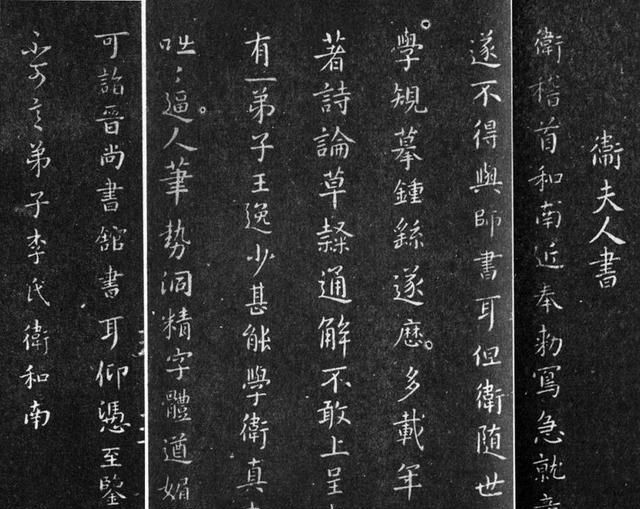 衛夫人書
衛稽首和南近奉勑寫急就章
遂不得與師書耳但衛隨世
學規摹鍾繇遂歷多載年
著詩論草隸通解不敢上呈
有一弟子王逸少甚能學衛真
咄咄逼人筆勢洞精字體遒媚
可詣晉尚書館書耳仰憑至鑒
不可言弟子李氏衛和南